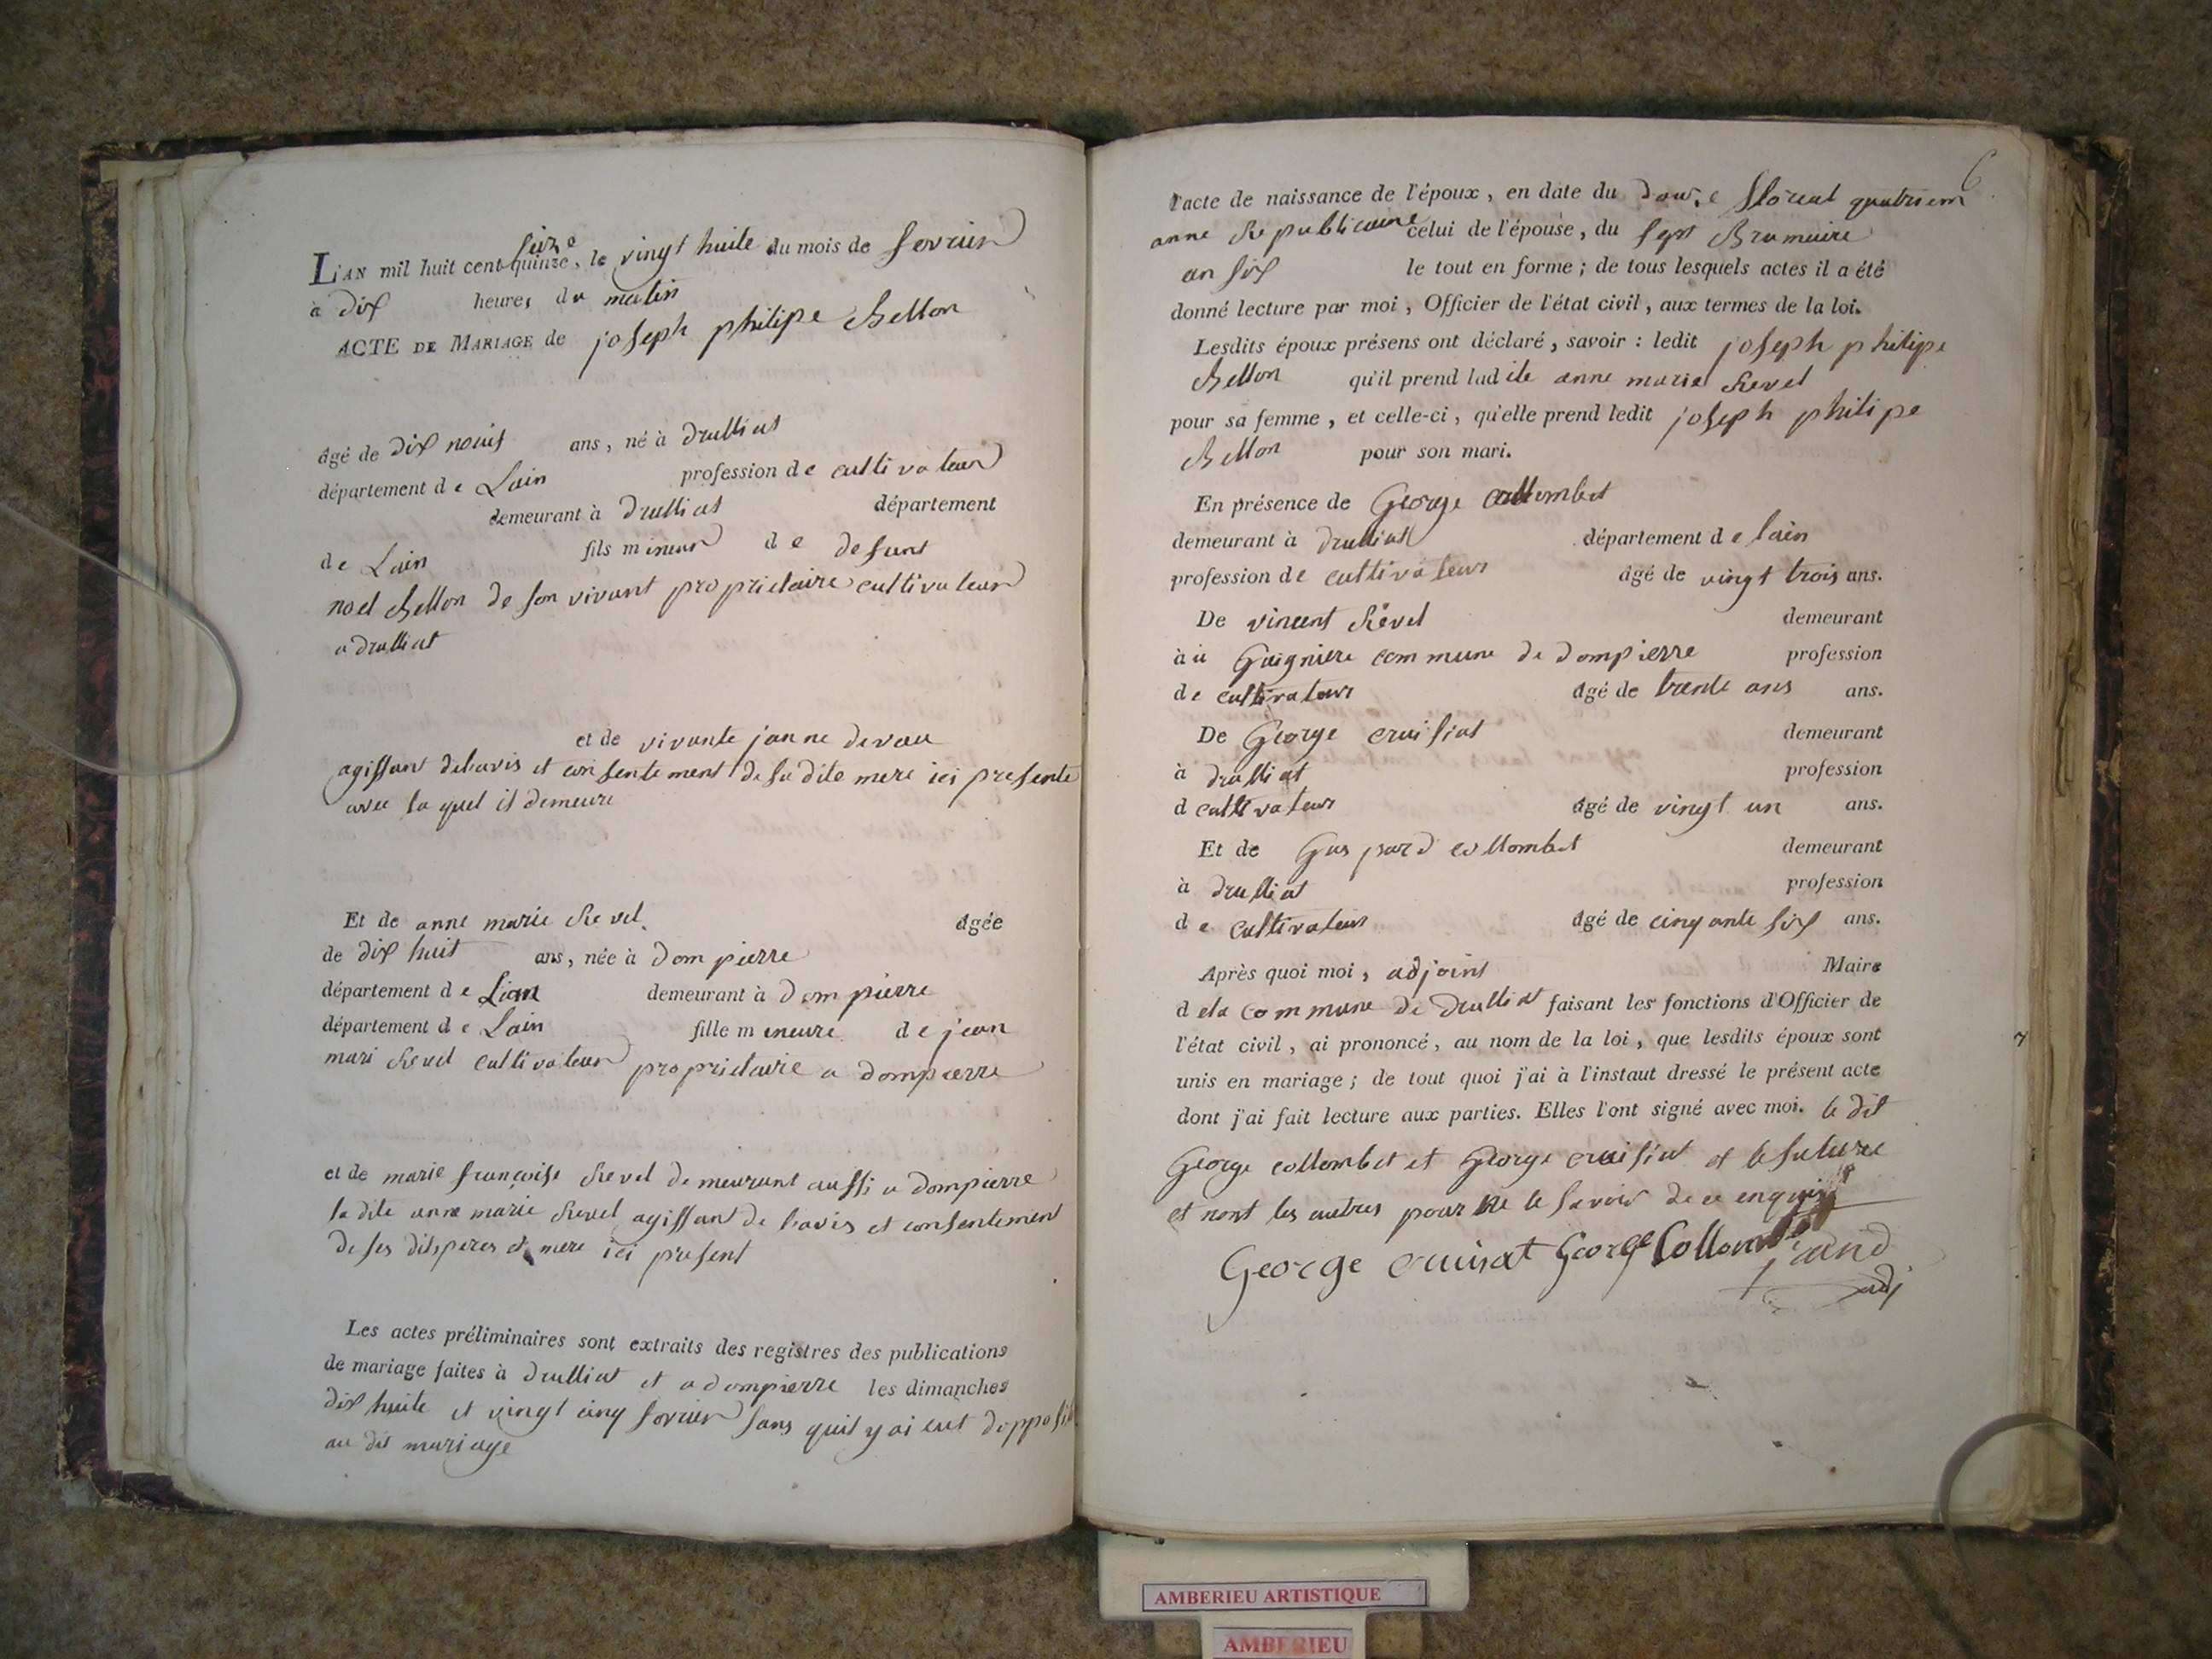 L'AN mil huit cent quinze, le vingt huite du mois de fevrier
seize
à dix heures du matin
ACTE DE MARIAGE de joseph philipe Bellon
âgé de dix neuf ans, né à drulliat
département de Lain profession de cultivateur
demeurant à drulliat département
de Lain fils mineur de defunt
noel Bellon de son vivant proprietaire cultivateur
a drulliat
et de vivante janne devau
agissant delavis et consentement de sa dite mere ici presente
avec la quel il demeure
Et de anne marie Revel âgée
de dix huit ans, née à dompierre
département de Lain demeurant à dompierre
département de Lain fille mineure de jean
mari Revel cultivateur proprietaire a dompierre
et de marie françoise Revel demeurant aussi a dompierre
la dite anne marie Revel agissant de l'avis et consentement
de ses dits peres et mere ici present
Les actes préliminaires sont extraits des registres des publications
de mariage faites à drulliat et a dompierre les dimanches
dix huite et vingt cinq fevrier sans quil y ai eut dopposit
au dit mariage
6
l'acte de naissance de l'époux, en date du douze floreal quatriem
anne Republicaine celui de l'épouse, du sept Brumaire
an six le tout en forme; de tous lesquels actes il a été
donné lecture par moi, Officier de l'état civil, aux termes de la loi.
Lesdits époux présens ont déclaré, savoir: ledit joseph philipe
Bellon qu'il prend ladite anne marie Revel
pour sa femme, et celle-ci, qu'elle prend ledit joseph philipe
Bellon pour son mari.
En présence de George Collombet
demeurant à drulliat département de lain
profession de cultivateur âgé de vingt trois ans.
De vincent Revel demeurant
à a Guignière commune de dompierre profession
de cultivateur âgé de trente ans ans.
De George cruisiat demeurant
à drulliat profession
d cultivateur âgé de vingt un ans.
Et de Gaspard collombet demeurant
à drulliat profession
de cultivateur âgé de cinqante six ans.
Après quoi moi, adjoint Maire
dela commune de drulliat faisant les fonctions d'Officier de
l'état civil, ai prononcé, au nom de la loi, que lesdits époux sont
unis en mariage; de tout quoi j'ai à l'instant dressé le présent acte
dont j'ai fait lecture aux parties. Elles l'ont signé avec moi. le dit
George collombet et George cruisiat et le future
et nont les autres pour ne le savoir de ce enquis
George cruisat George Collombet
adj
AMBERIEU ARTISTIQUE
AMBERIEU